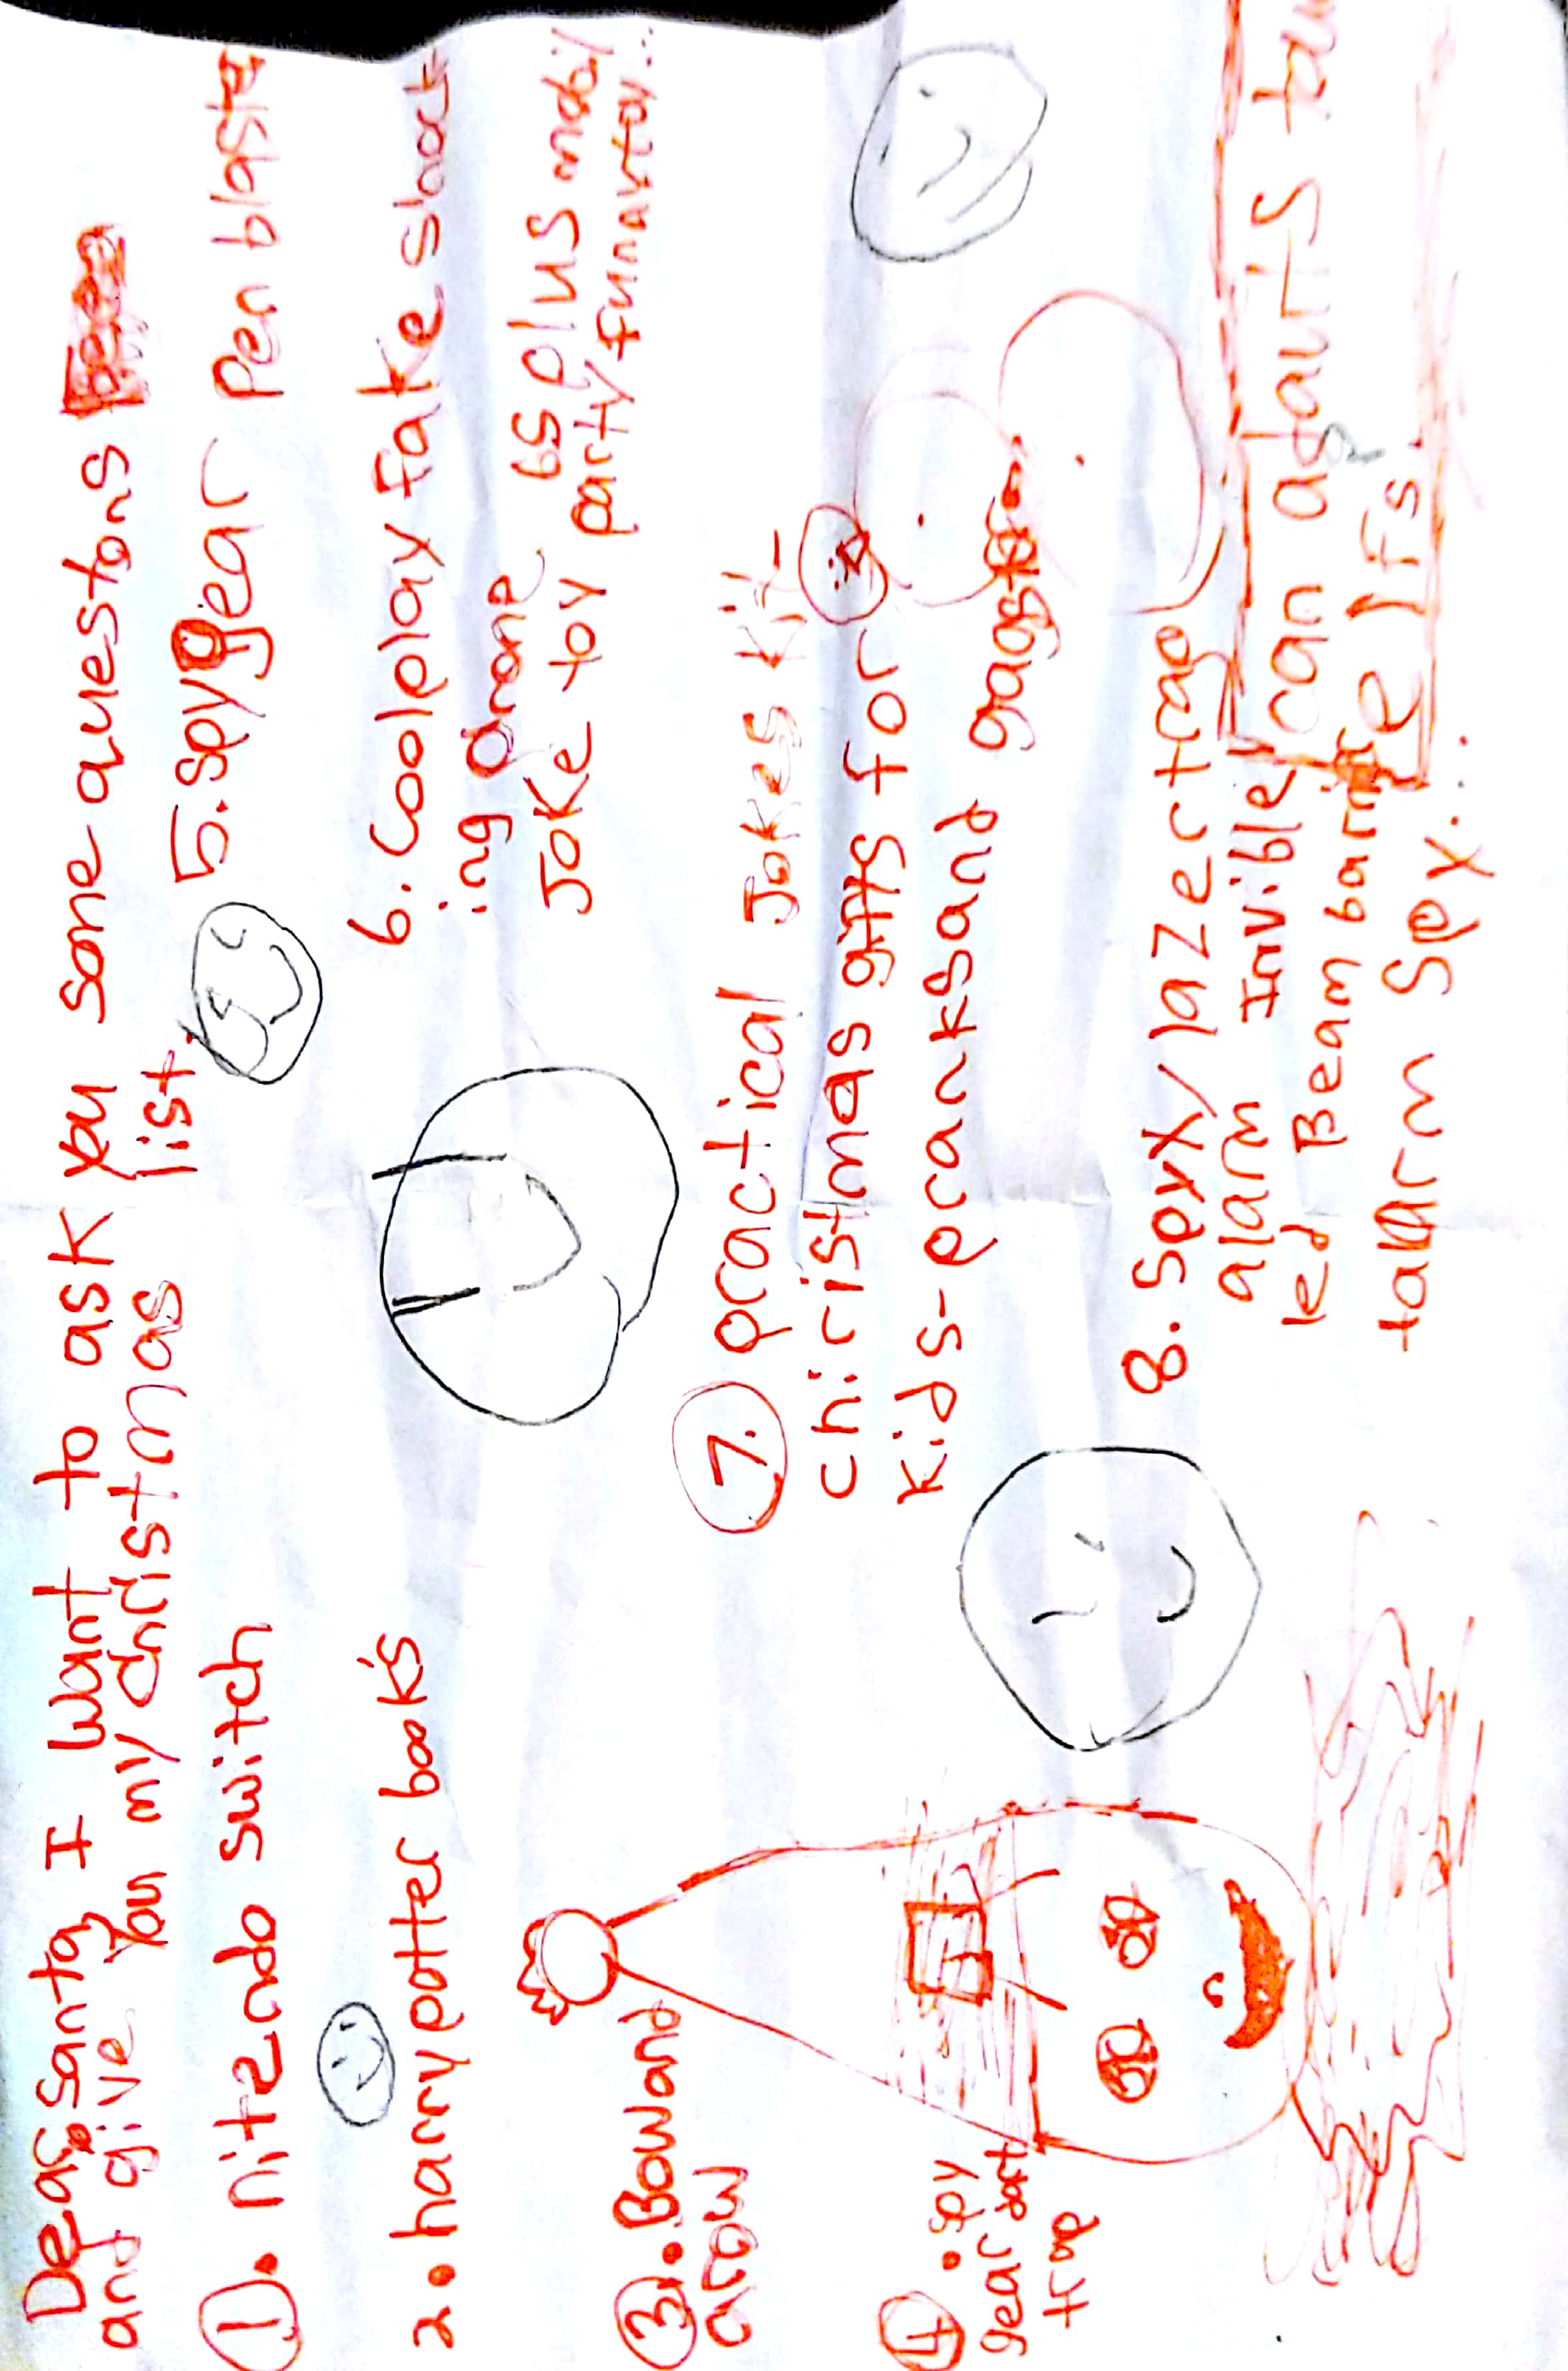 Dear Santa, I want to ask you some questons
and give you my christmas list.
1. nitendo switch
2. harry potter book's
3. Bow and
arow
4. spy
gear
trap
5. spy gear Pen blaste
6. Coolplay fake shock
ing drone
Joke toy party funnytoy...
6s plus moby
7. practical Jokes kit-
christmas gifts for
Kids-pranks and gags
8. spyX/lazer trap
alarm Invible
led Beam barri
talarm Spy...
can adults
elfs.